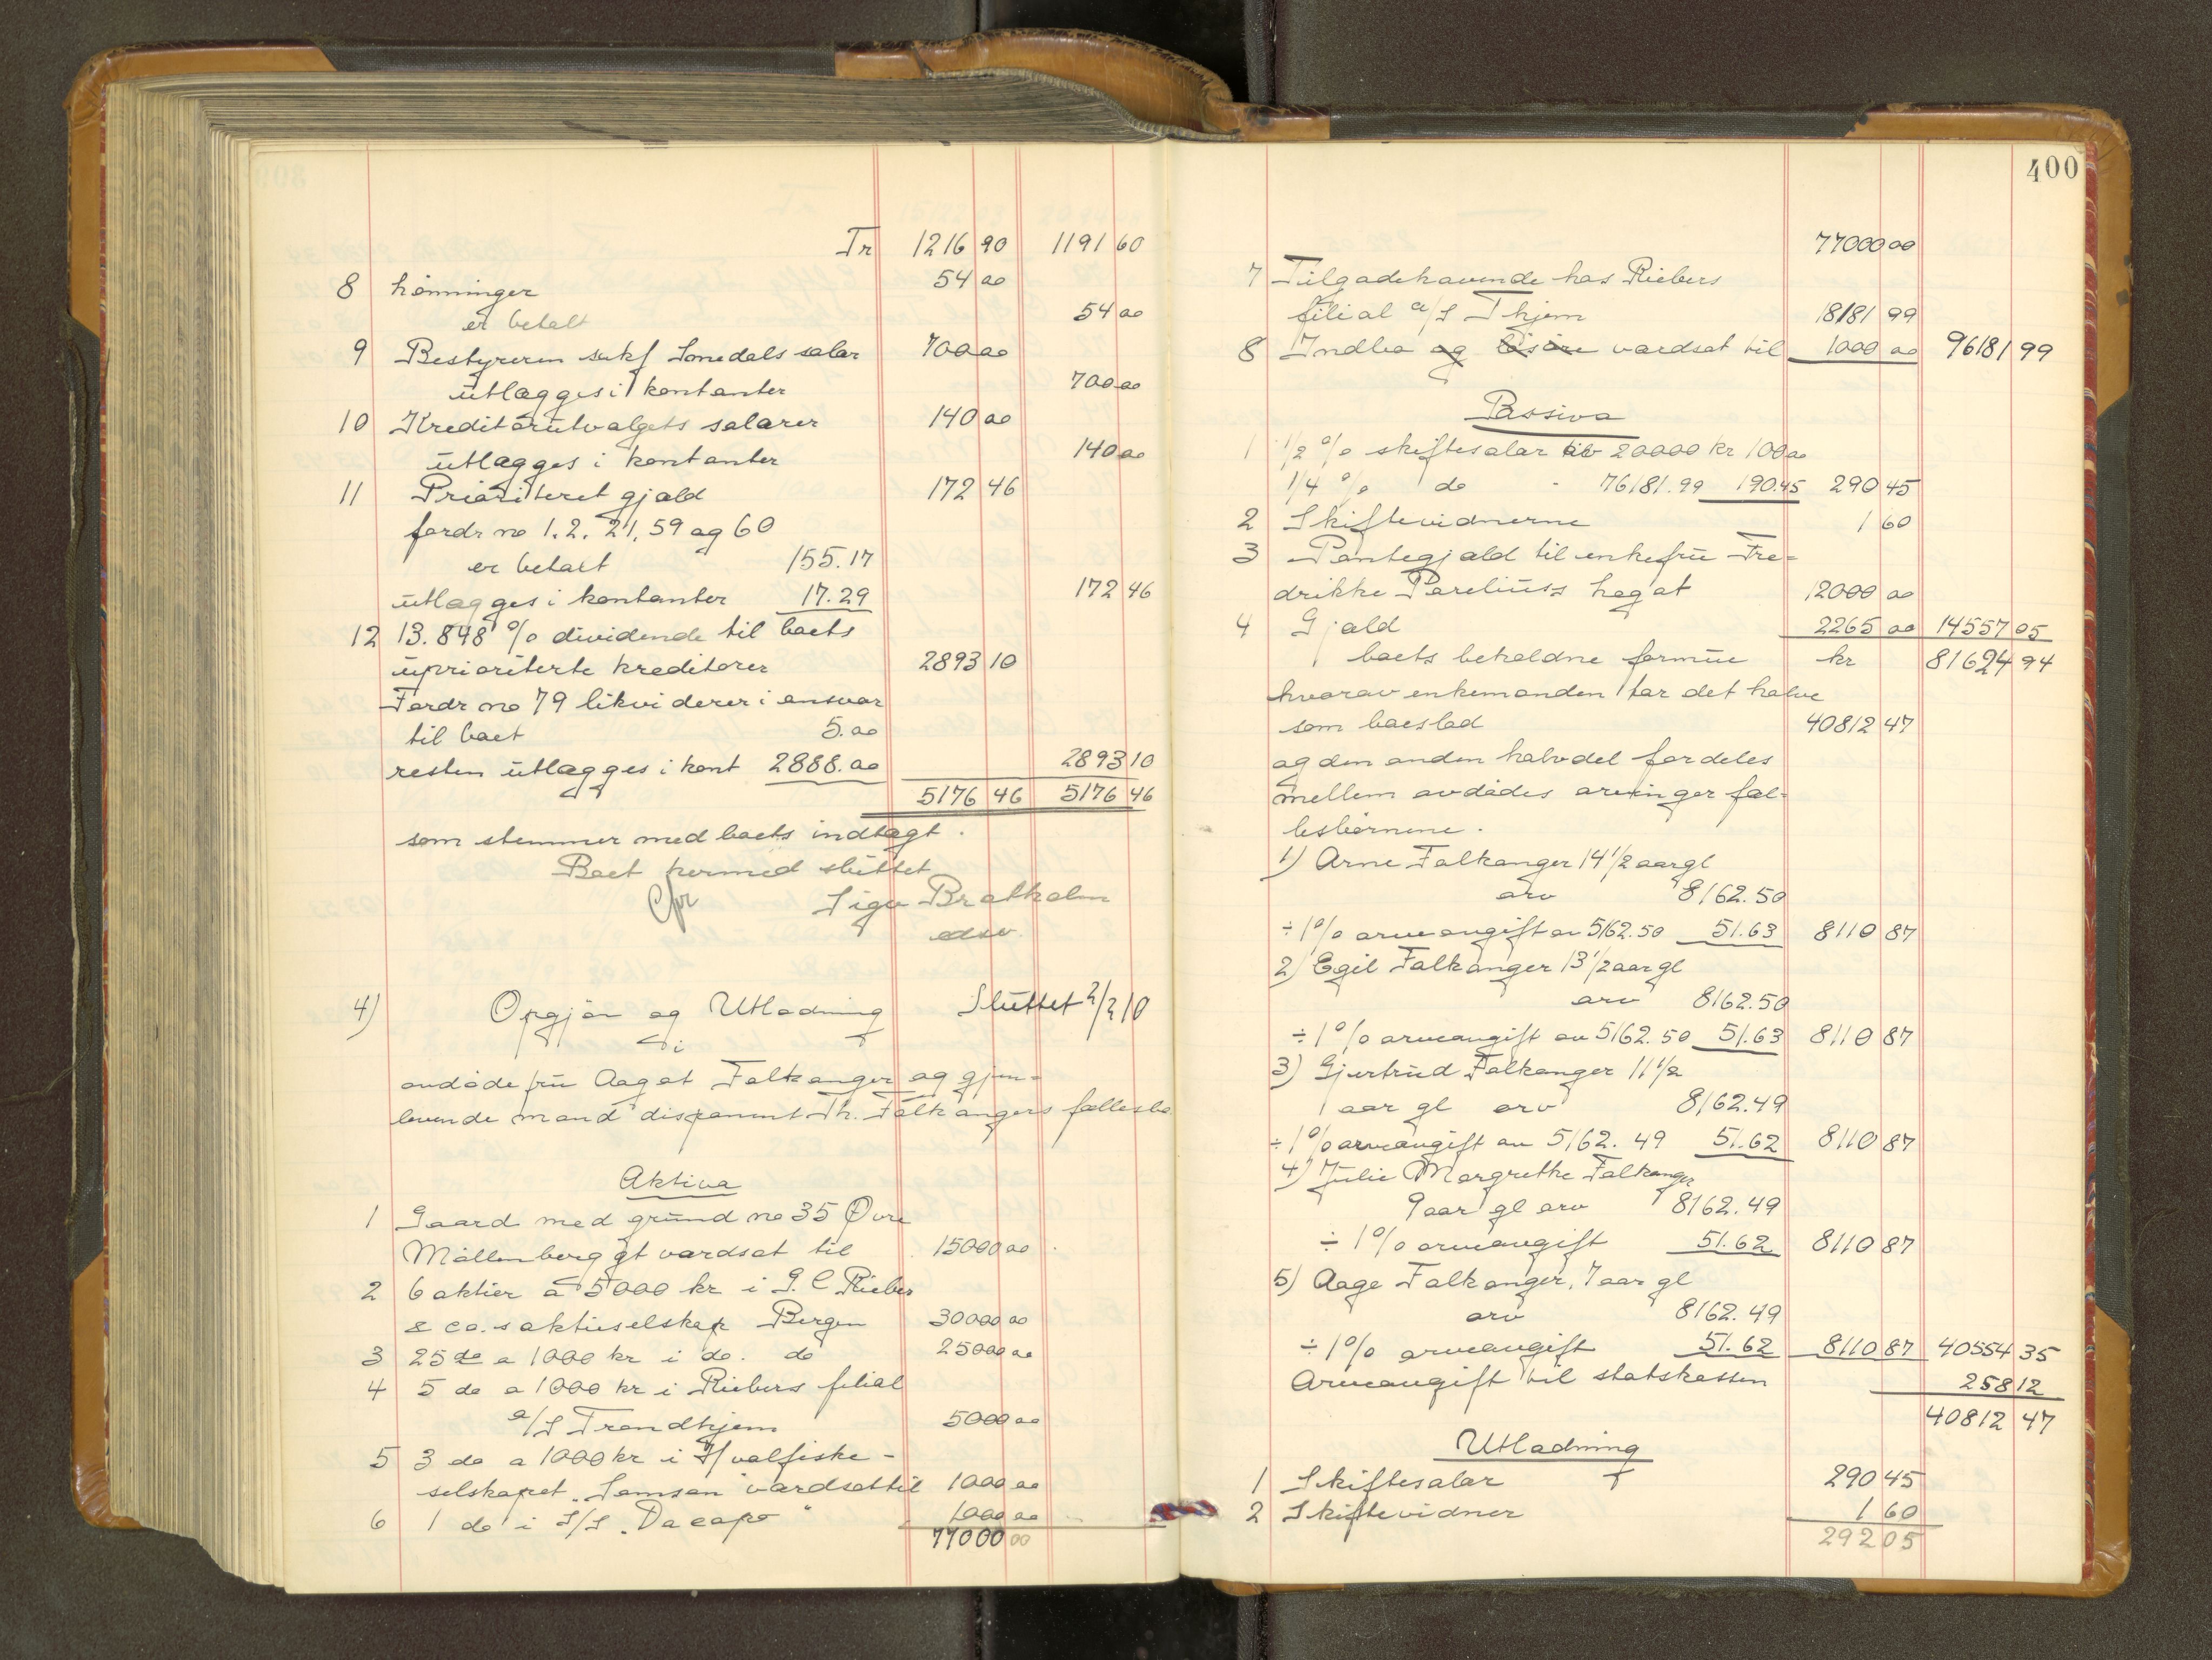 Tr 1216 90 1191 60
8 Lønninger 54 00
er betalt 54 00
9 Bestyreren sakf Sonedals salær 700 00
utlægges i kontanter 700 00
10 Kreditorutvalgets salærer 140 00
utlægges i kontanter 140 00
11 Prioriteret gjæld 172 46
fordr no 1. 2. 21, 59 og 60
er betalt 155.17
utlægges i kontanter 17.29 172 46
12 13.848 % dividende til boets
uprioriterte kreditorer 2893 10
Fordr no 79 likviderer i ansvar
til boet 5.00
resten utlægges i kont 2888.00 2893 10
5176 46 5176 46
som stemmer med boets indtægt.
Boet hermed sluttet
Cfr Sigv Bratholm
edsv.
4) Opgjør og Utlodning Sluttet 2/2 10
i
avdøde fru Aagot Falkanger og gjen-
levende mand disponent Th. Falkangers fællesbo
Aktiva
1 Gaard med grund no 35 Øvre
Møllenberg gt værdsat til 15000 00
2 6 aktier a 5000 kr i G. C. Rieber
& co.s aktieselskap Bergen 30000 00
3 25 do a 1000 kr i do. do 25000 00
4 5 do a 1000 kr i Riebers filial
a/S Trondhjem 5000 00
5 3 do a 1000 kr i Hvalfiske-
selskapet "Samson" værdsat til 1000 00
6 1 do i S/S "Da capo" 1000 00
77000 00
400
77000 00
7 Tilgodehavende hos Riebers
filial a/S Thjem 18181 99
8 Indbo og løsøre værdsat til 1000 00 96181 99
Passiva
1 1/2 % skiftesalær av 20000 kr 100 00
1/4 % do - 76181.99 190.45 290 45
2 Skiftevidnerne 1 60
3 Pantegjæld til enkefru Fre-
drikke Parelius's legat 12000 00
4 Gjæld 2265 00 14557 05
boets beholdne formue kr 81624 94
hvorav enkemanden tar det halve
som boeslod 40812 47
og den anden halvdel fordeles
mellem avdødes arvinger fæl-
lesbørnene.
1) Arne Falkanger 14 1/2 aar gl
arv 8162.50
÷ 1 % arveavgift av 5162.50 51.63 8110 87
2) Egil Falkanger 13 1/2 aar gl
arv 8162.50
÷ 1 % arveavgift av 5162.50 51.63 8110 87
3) Gjertrud Falkanger 11 1/2
aar gl arv 8162.49
÷ 1 % arveavgift av 5162.49 51.62 8110 87
4) Julie Margrethe Falkanger
9 aar gl arv 8162.49
÷ 1 % arveavgift 51.62 8110 87
5) Aage Falkanger, 7 aar gl
arv 8162.49
÷ 1 % arveavgift 51.62 8110 87 40554 35
Arveavgift til statskassen 258 12
40812 47
Utlodning
1 Skiftesalær 290 45
2 Skiftevidner 1 60
292 05